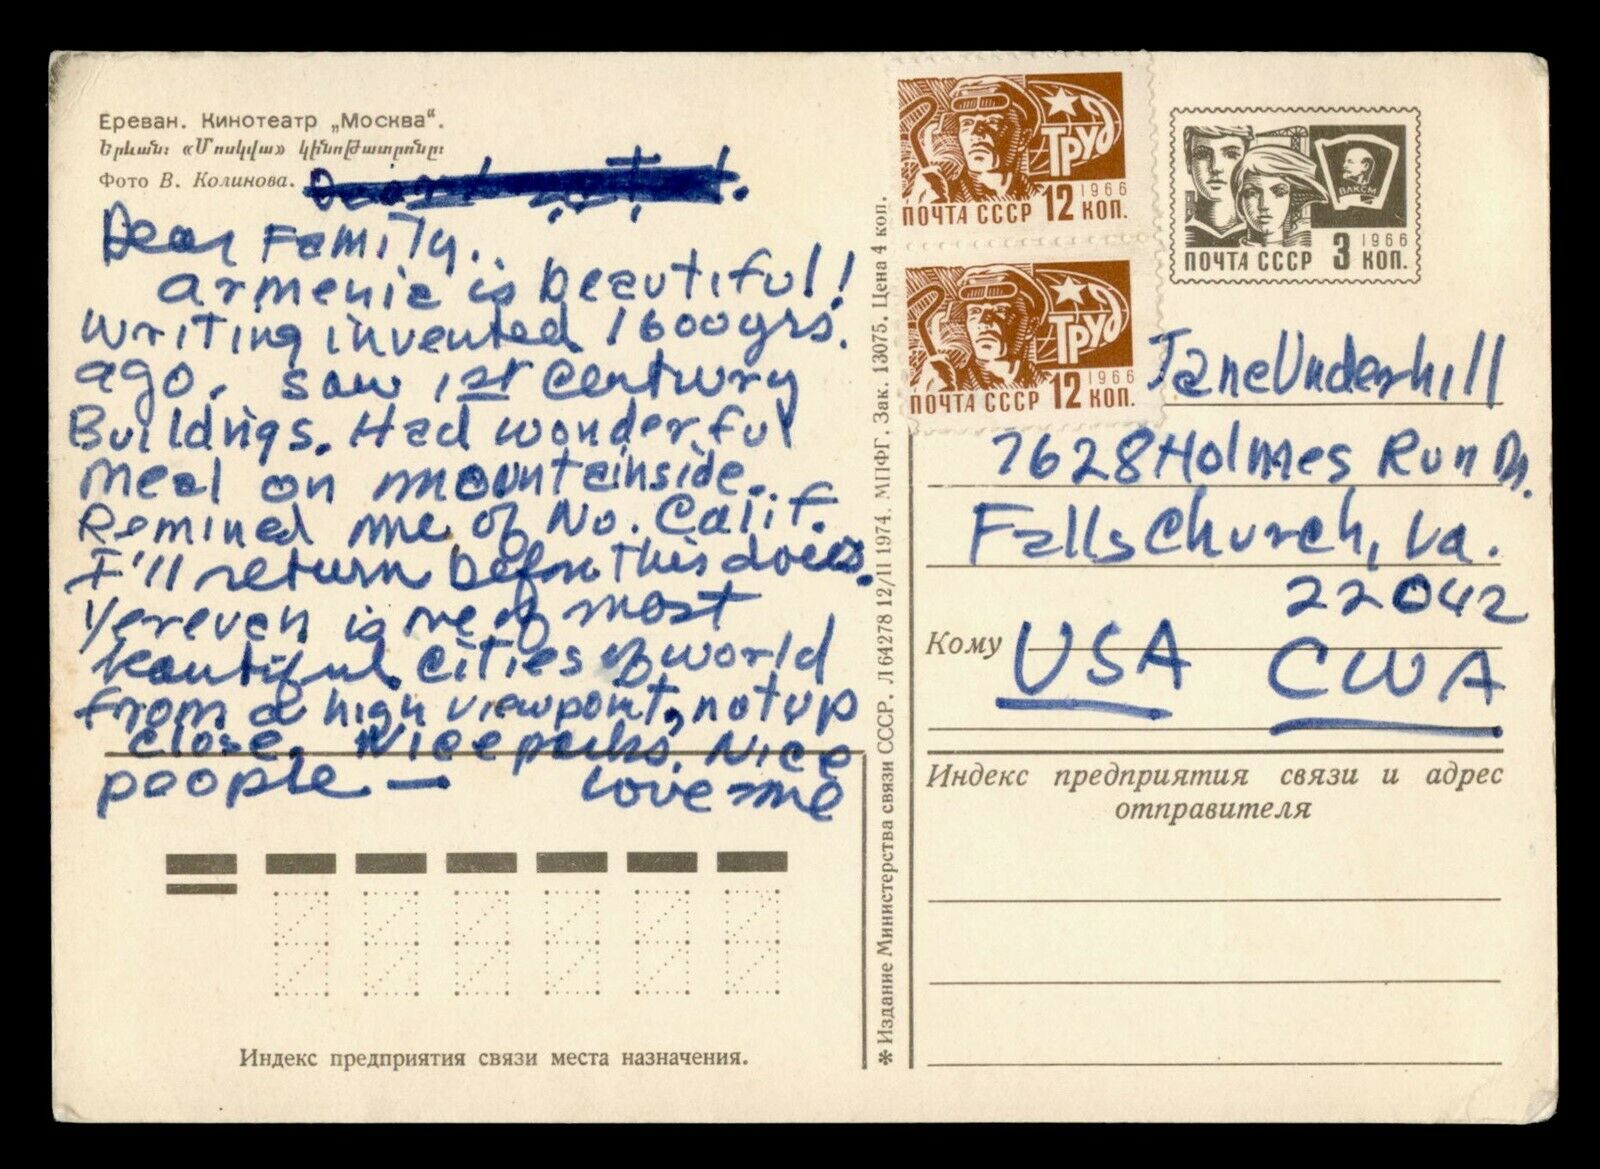 Ереван. Кинотеатр „Москва“.
Երևան: «Մոսկվա» կինոթատրոնը:
Фото В. Колинова.
Dear Family..
Armenia is beautiful!
Writing invented 1600 yrs.
ago. Saw 1st Century
Buildings. Had wonderful
meal on mountainside.
Remined me of No. Calif.
I'll return before this does.
Yerevan is one of most
beautiful cities of world
from a high viewpoint, not up
close. Nice parks. Nice
people — Love me
Индекс предприятия связи места назначения.
✻ Издание Министерства связи СССР. Л 64278 12/II 1974. МПФГ. Зак. 13075. Цена 4 коп.
Труд
1966
ПОЧТА СССР 12 КОП.
Труд
1966
ПОЧТА СССР 12 КОП.
ВЛКСМ
1966
ПОЧТА СССР 3 КОП.
Jane Underhill
7628 Holmes Run Dr.
Falls Church, Va.
22042
Кому USA CWA
Индекс предприятия связи и адрес
отправителя